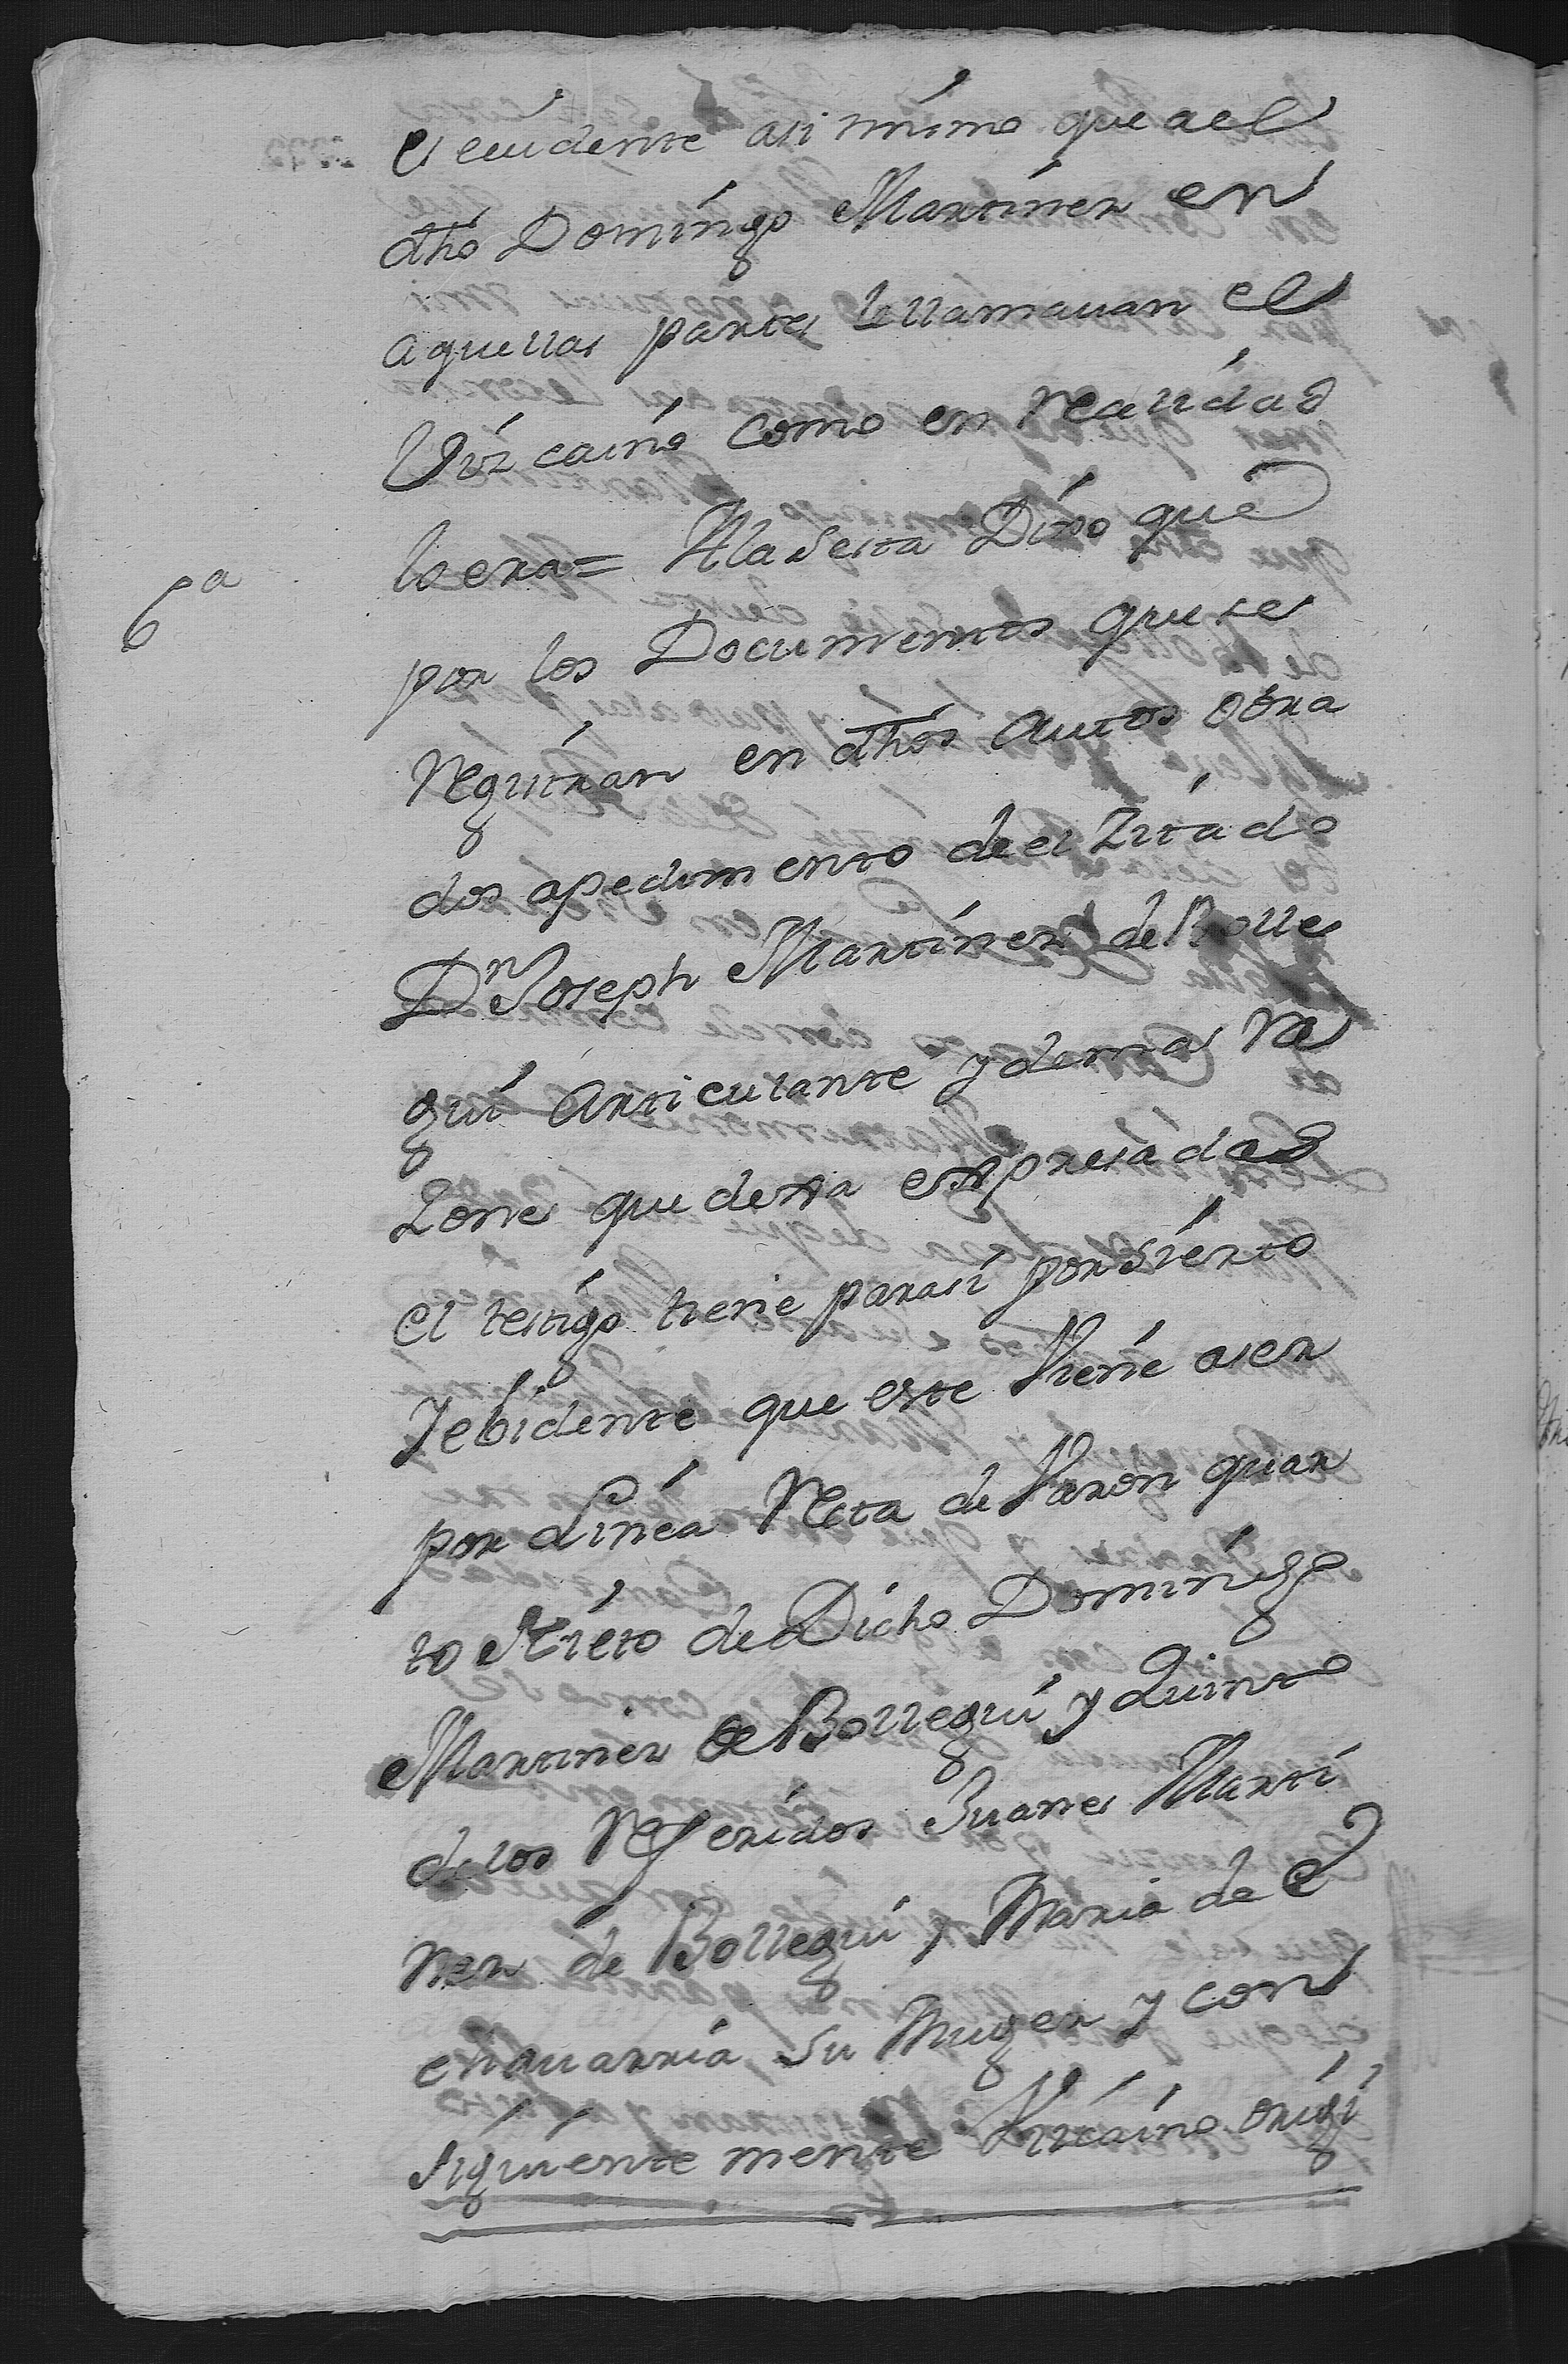 es eeuidente asi mismo que ael
dho Domingo Martinez en
aquellas partes le llamauan el
Vizcaino como en Realidad
lo era = A la Sesta Dixo que
6a
por los Documentos que se
Registran en dhos Autos obra
dos a pedimento de el Zitado
Dn Joseph Martinez de Bolle
gui Articulante y demas Ra
zones que dexa expresadas
el testigo tiene para si por Sierto
y ebidente que este Viene a ser
por Linea Recta de Varon quar
to Nieto de Dicho Domingo
Martinez de Bollegui y Quinto
de los Referidos Juanes Marti
nez de Bollegui y Maria de e
chauarria su Muger y con
siguiente mente Vizcaino origi